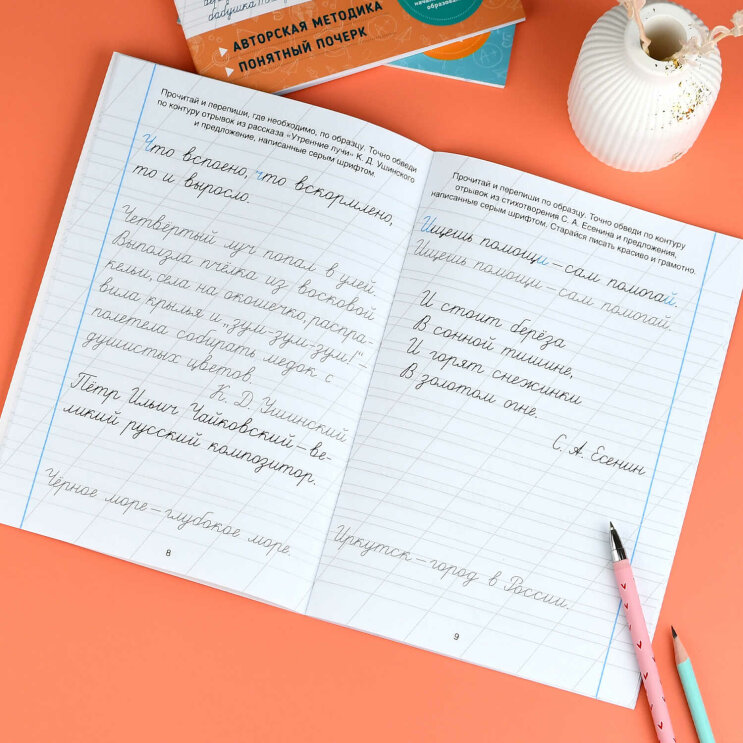 бабушка
АВТОРСКАЯ МЕТОДИКА
ПОНЯТНЫЙ ПОЧЕРК
Прочитай и перепиши, где необходимо, по образцу. Точно обведи
по контуру отрывок из рассказа «Утренние лучи» К. Д. Ушинского
и предложение, написанные серым шрифтом.
Что вспоено, что вскормлено,
то и выросло.
Четвёртый луч попал в улей.
Выползла пчёлка из восковой
кельи, села на окошечко, распра-
вила крылья и „зум-зум-зум!“ –
полетела собирать медок с
душистых цветов.
К. Д. Ушинский
Пётр Ильич Чайковский – ве-
ликий русский композитор.
Чёрное море – глубокое море.
8
Прочитай и перепиши по образцу. Точно обведи по контуру
отрывок из стихотворения С. А. Есенина и предложения,
написанные серым шрифтом. Старайся писать красиво и грамотно.
Ищешь помощи – сам помогай.
Ищешь помощи – сам помогай.
И стоит берёза
В сонной тишине,
И горят снежинки
В золотом огне.
С. А. Есенин
Иркутск – город в России.
9